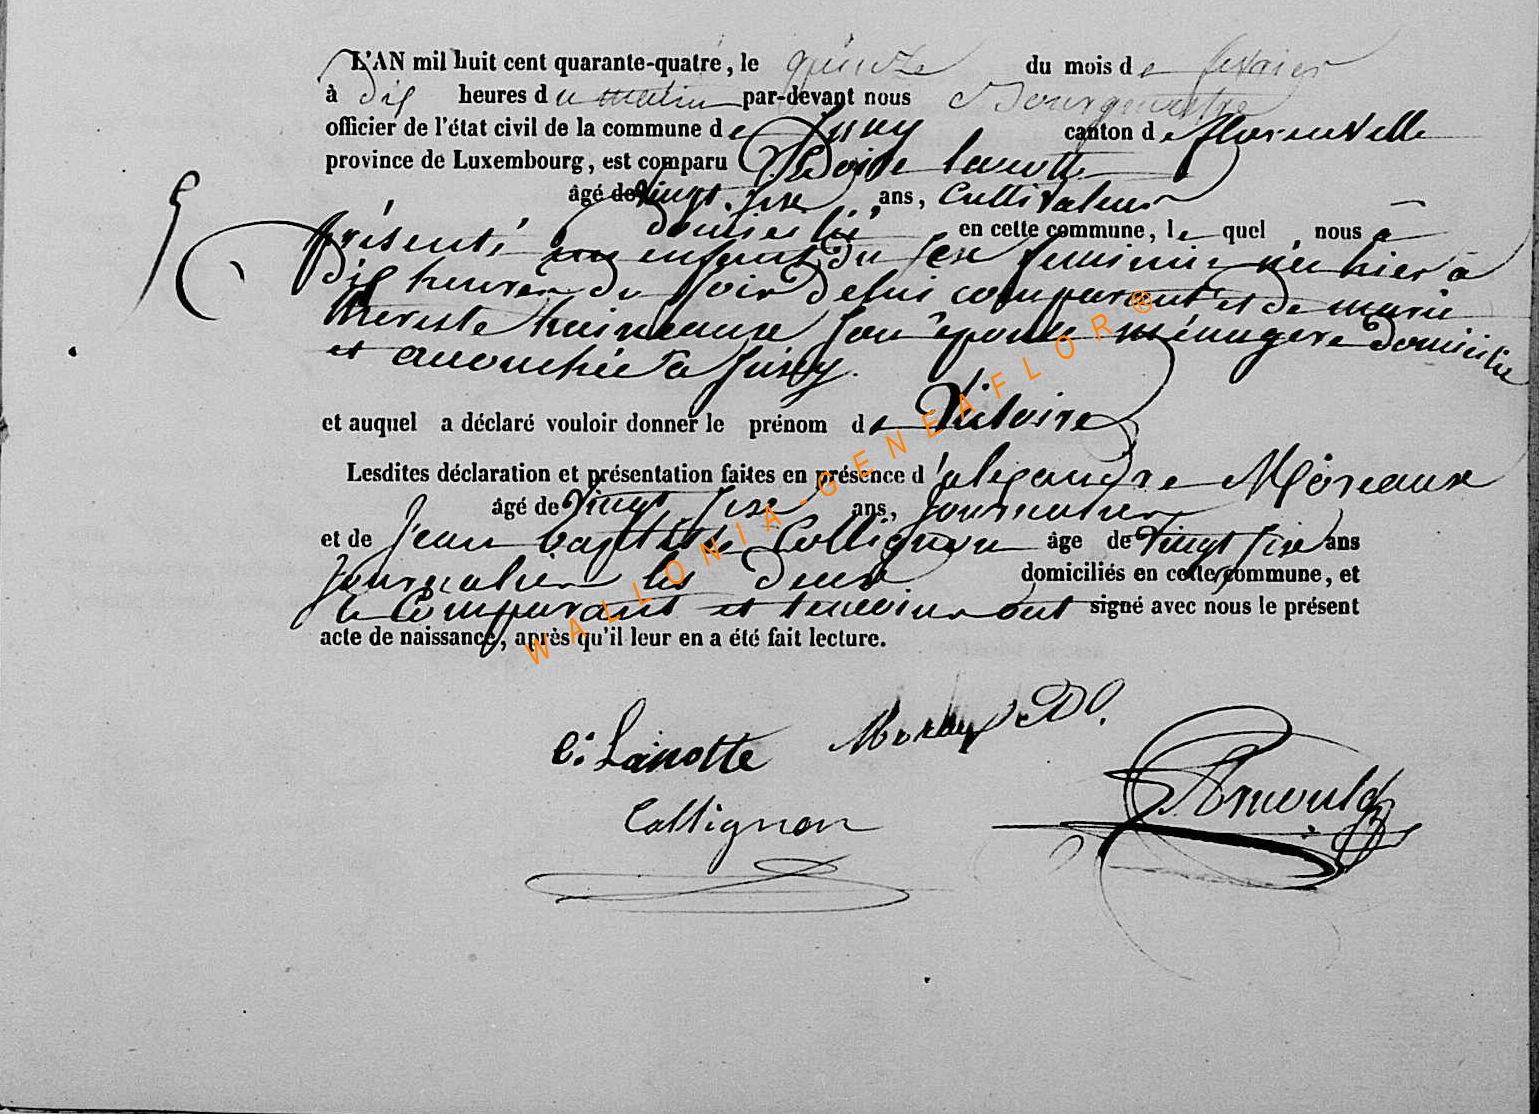 L'AN mil huit cent quarante-quatre, le quinze du mois de fevrier
à dix heures du matin par-devant nous Bourgmestre
officier de l'état civil de la commune de Jusny canton de florenville
province de Luxembourg, est comparu lanotte
âgé de vingt six ans, Cultivateur
domicilié en cette commune, le quel nous a
présenté un enfant du sexe feminin né hier à
dix heures du soir de lui comparant et de marie
thereste haineaux son épouse ménagere domicilié
et accouchée a Jusny.
et auquel a déclaré vouloir donner le prénom de Victoire
Lesdites déclaration et présentation faites en présence d'alexandre Moreaux
âgé de vingt six ans, Journalier
et de Jean baptiste Collignon âge de vingt six ans
Journalier les deux domiciliés en cette commune, et
le Comparant et temoins ont signé avec nous le présent
acte de naissance, après qu'il leur en a été fait lecture.
C: Lanotte
Collignon Arnould
WALLONIA-GENEAFLOR®